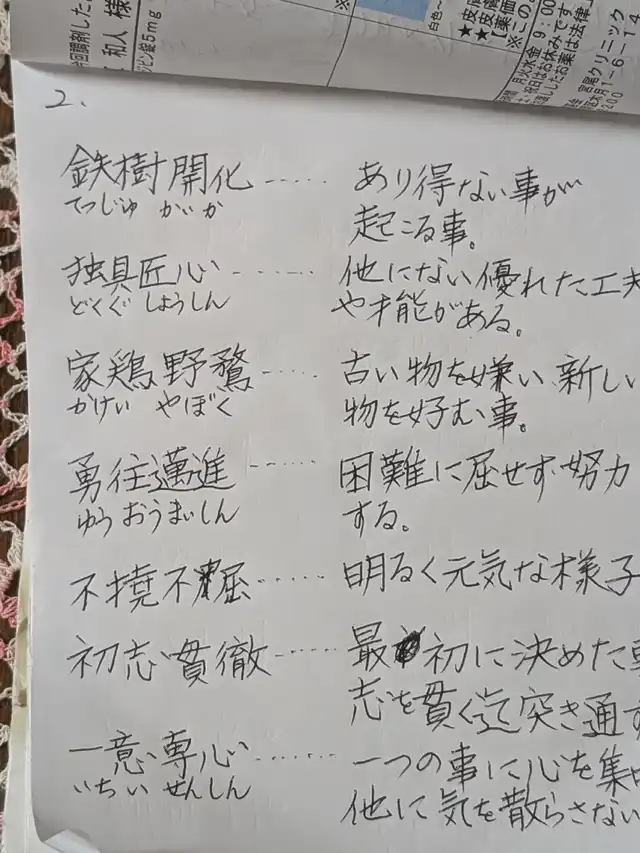 和人 様
5mg
白色～
★皮膚
★皮膚
月火水金 9:00
宮尾クリニック
2.
鉄樹開化 ····· あり得ない事が
てつじゅ がいか
起こる事。
独具匠心 ····· 他にない優れた工夫
どくぐ しょうしん
や才能がある。
家鶏野鶩 ····· 古い物を嫌い、新しい
かけい やぼく
物を好む事。
勇往邁進 ····· 困難に屈せず努力
ゆうおうまいしん
する。
不撓不屈 ····· 明るく元気な様子
初志貫徹 ····· 最初に決めた
志を貫く迄突き通す
一意専心 ····· 一つの事に心を集
いちい せんしん
他に気を散らさない